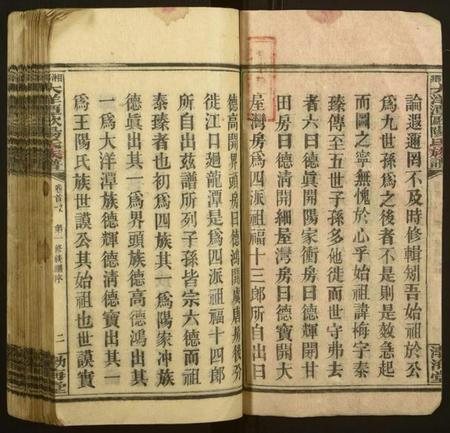 論遐邇罔不及時修輯矧吾始祖於公
為九世孫為之後者不是則是效急起
而圖之寧無愧於心乎始祖諱梅字泰
臻傳至五世子孫多他徙而世守弗去
者六曰德真開陽家衝房曰德輝開甘
田房曰德清開細屋灣房曰德寶開大
屋灣房為四派祖福十三郎所自出曰
德高開界頭房曰德鴻開廣唐房後分
徙江口迴龍潭是為四派祖福十四郎
所自出玆譜所列子孫皆宗六德而祖
泰臻者也初為四族其一為陽家冲族
德真出其一為界頭族德高德鴻出其
一為大洋潭族德輝德清德寶出其一
為王陽氏族世謨公其始祖也世謨實
湘
大洋潭歐陽氏族譜
卷首
第一修族譜序
二
渤海堂